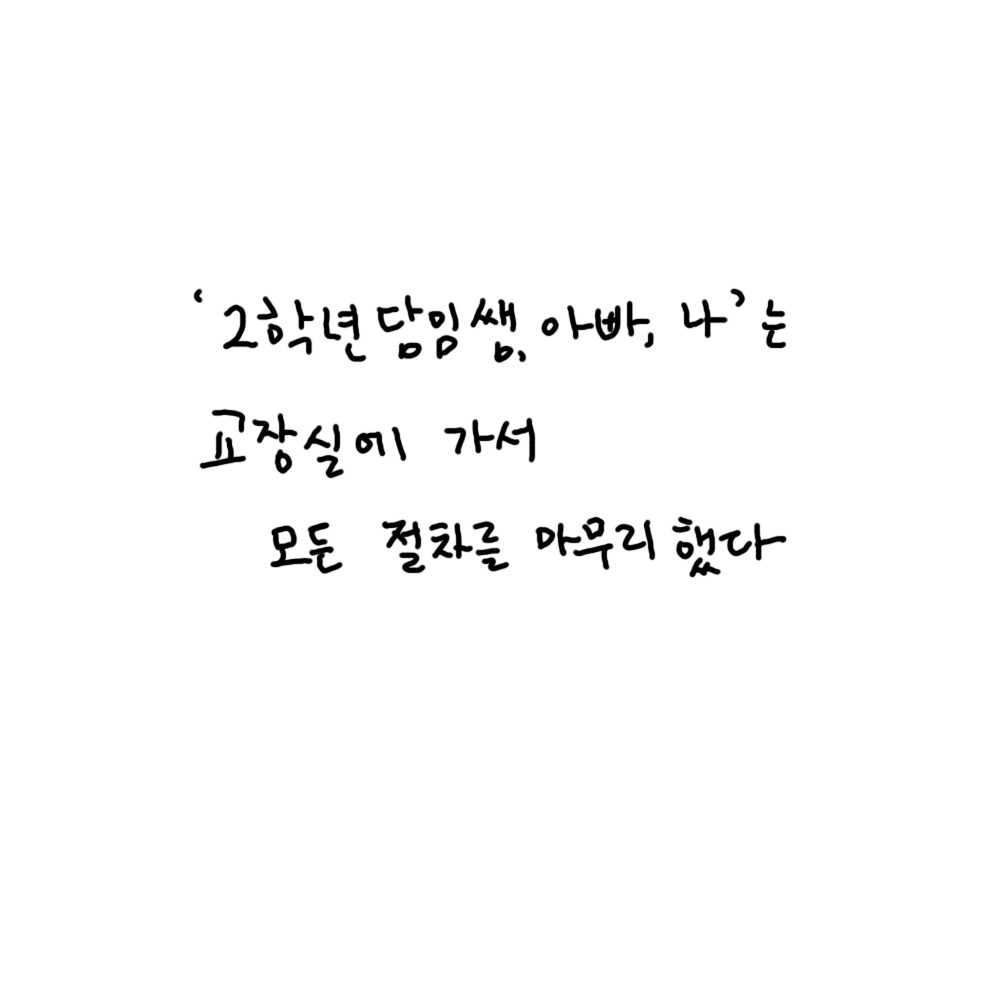 '2학년담임쌤, 아빠, 나'는
교장실에 가서
모든 절차를 마무리했다